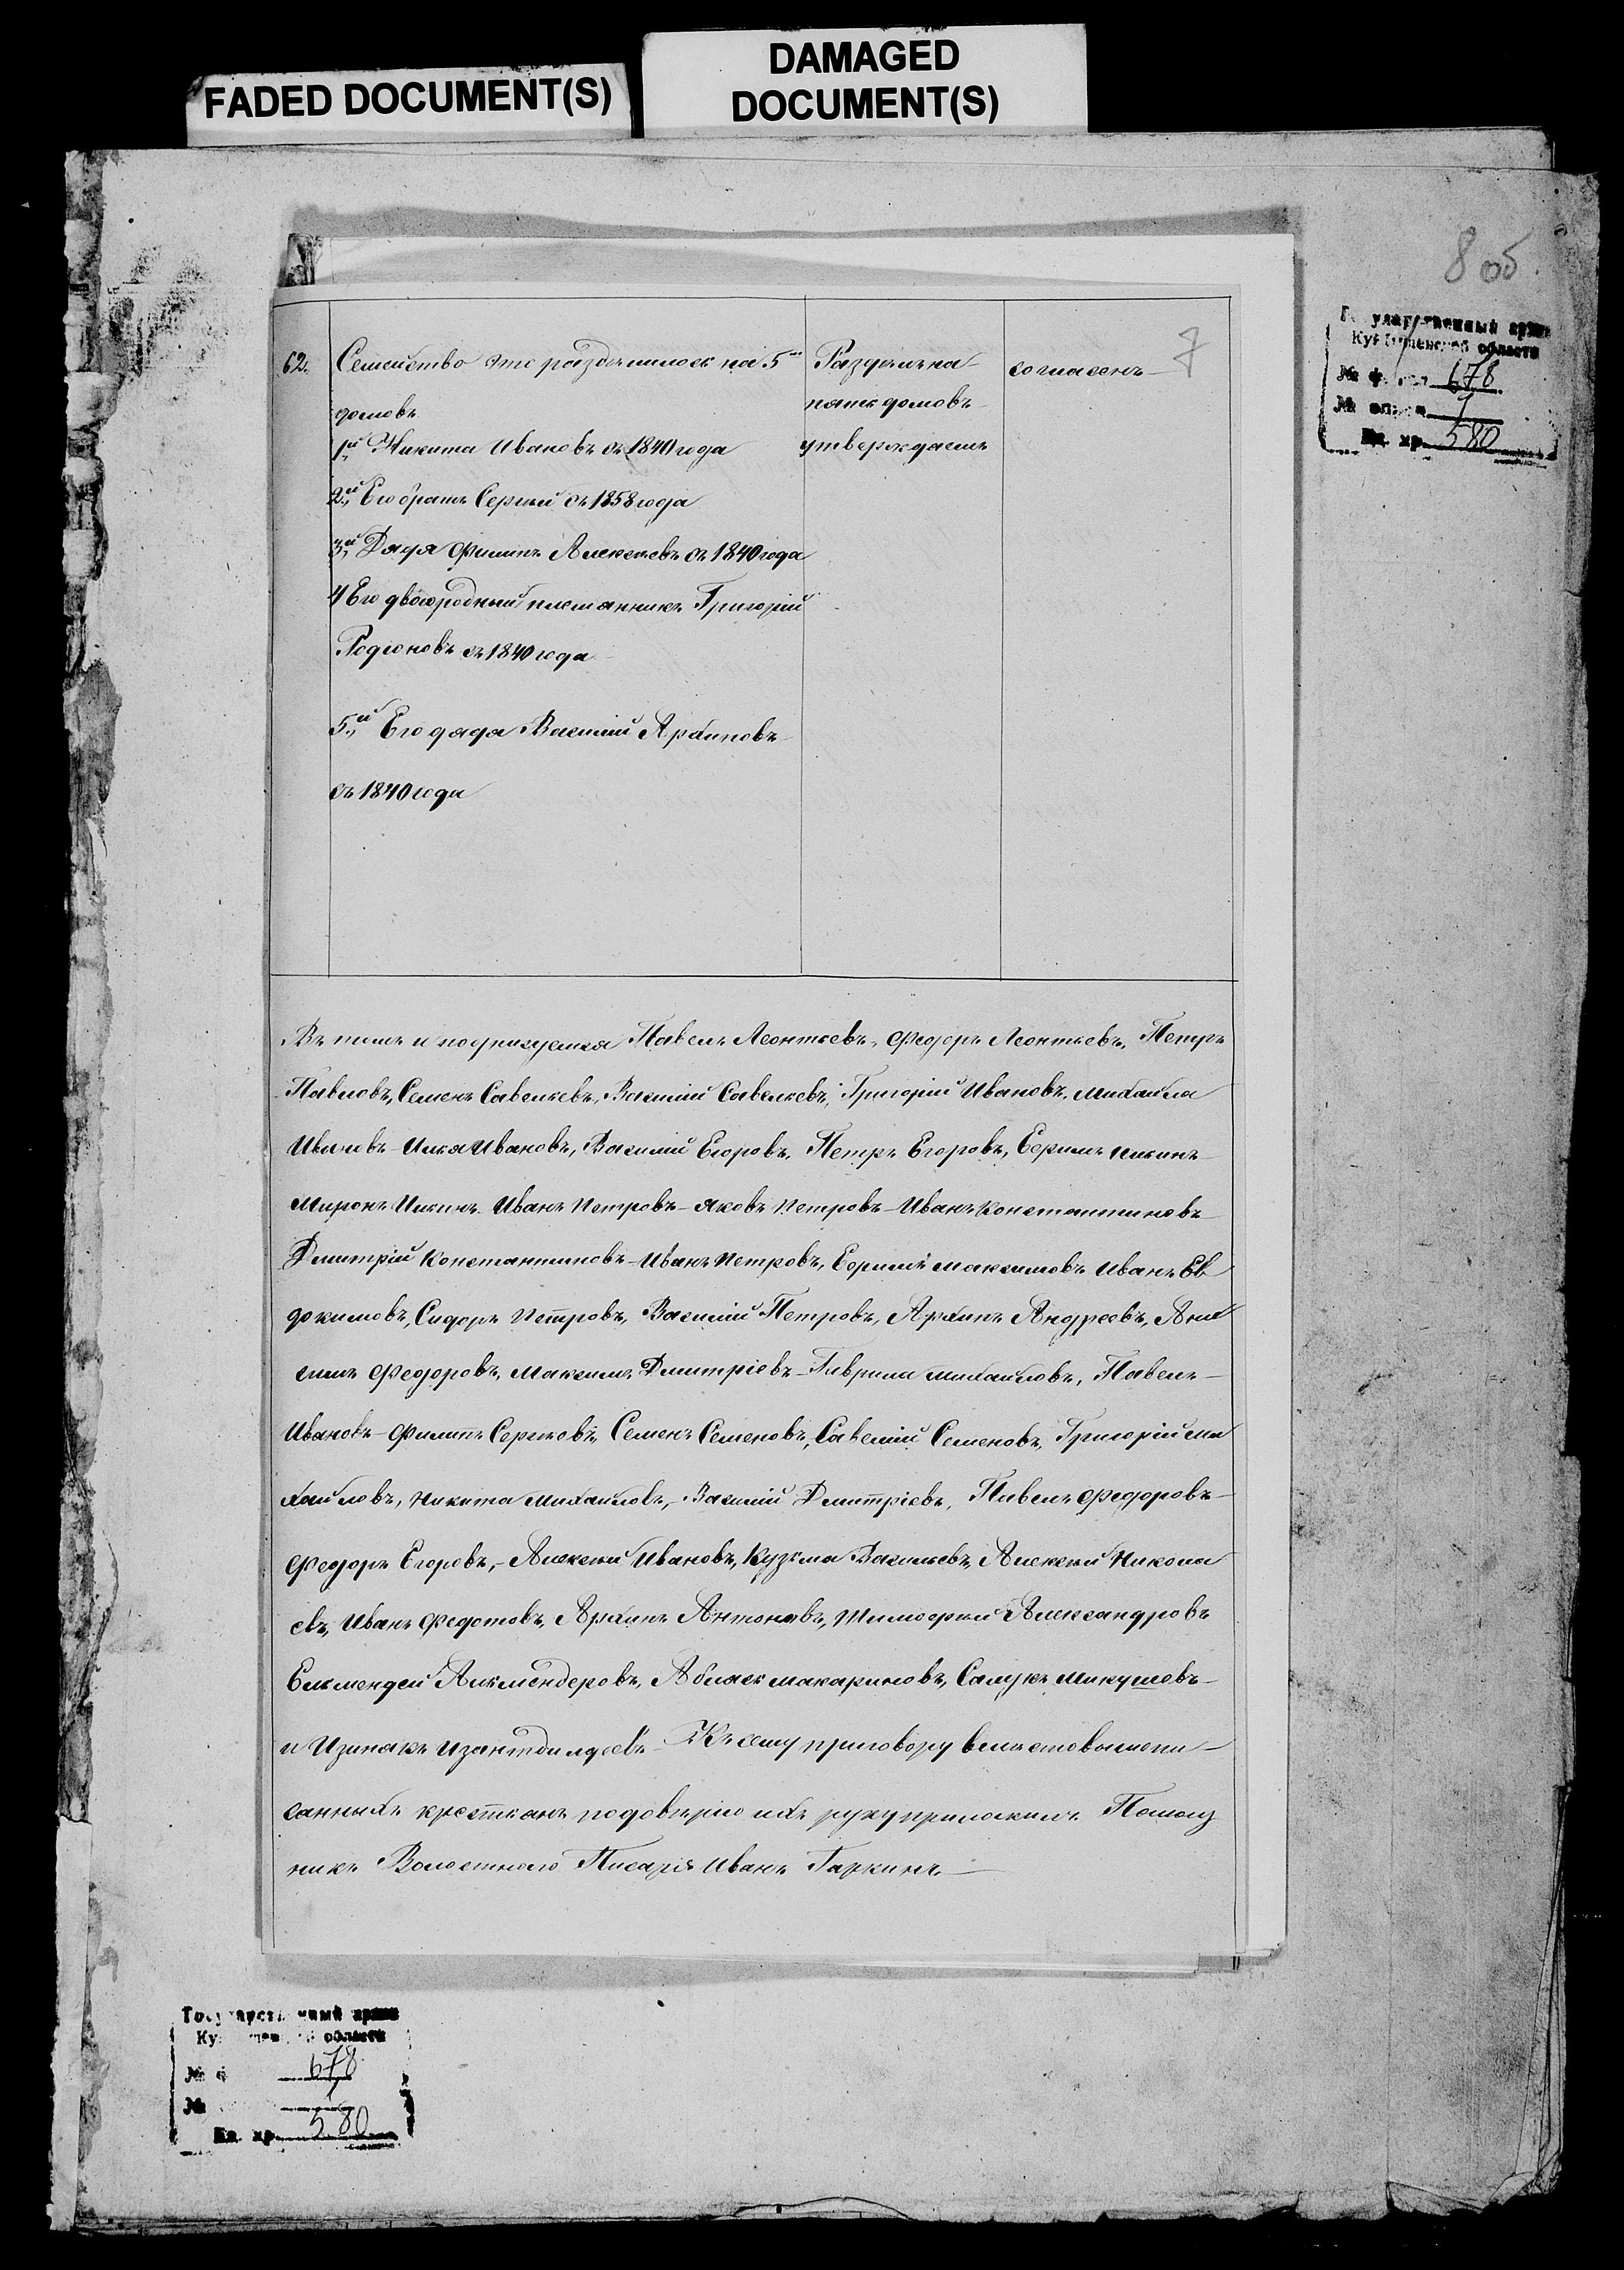 FADED DOCUMENT(S)
DAMAGED
DOCUMENT(S)
8 об.
7
Государственный архив
Куйбышевской области
№ фонда 678
№ описи 1
Ед. хр. 580
62. Семейство это разделилось на 5ть
домовъ
1й Никита Ивановъ съ 1840 года
2й Его братъ Сергѣй съ 1858 года
3й Дядя Филипъ Алексѣевъ съ 1840 года
4 Его двоюродный племянникъ Григорій
Родионовъ съ 1840 года
5й Его дядя Василій Архиповъ
съ 1840 года
Раздѣлъ на
пять домовъ
утверждаемъ
согласенъ
Въ томъ и подписуемся Павелъ Леонтьевъ, Федоръ Леонтьевъ, Петръ
Павловъ, Семенъ Савельевъ, Василій Савельевъ, Григорій Ивановъ, Михайла
Ивановъ Илья Ивановъ, Василій Егоровъ, Петръ Егоровъ, Ефимъ Илинъ
Миронъ Илинъ Иванъ Петровъ Яковъ Петровъ Иванъ Константиновъ
Дмитрій Константиновъ Иванъ Петровъ, Ефримъ Максимовъ Иванъ Ев
докимовъ, Сидоръ Петровъ, Василій Петровъ, Архипъ Андреевъ, Ани
симъ Федоровъ, Максимъ Дмитріевъ Гаврила Михайловъ, Павелъ
Ивановъ Филипъ Сергѣевъ, Семенъ Семеновъ, Савелій Семеновъ, Григорій Ми
хайловъ, Никита Михайловъ, Василій Дмитріевъ, Павелъ Федоровъ
Федоръ Егоровъ, Алексѣй Ивановъ, Кузьма Васильевъ, Алексѣй Никола
евъ, Иванъ Федотовъ, Архипъ Антоновъ, Тимофѣй Александровъ
Елмендей Аклмендеровъ, Абласъ Макариновъ, Салукъ Микушевъ
и Изинакъ Изантбилдеевъ Къ сему приговору вмѣсто вышепи
санныхъ крестьянъ по довѣрію ихъ руку приложилъ Помощ
никъ Волостнаго Писаря Иванъ Гаркинъ
Государственный архив
Куйбышевской области
№ ф 678
№ 1
Ед. хр. 580